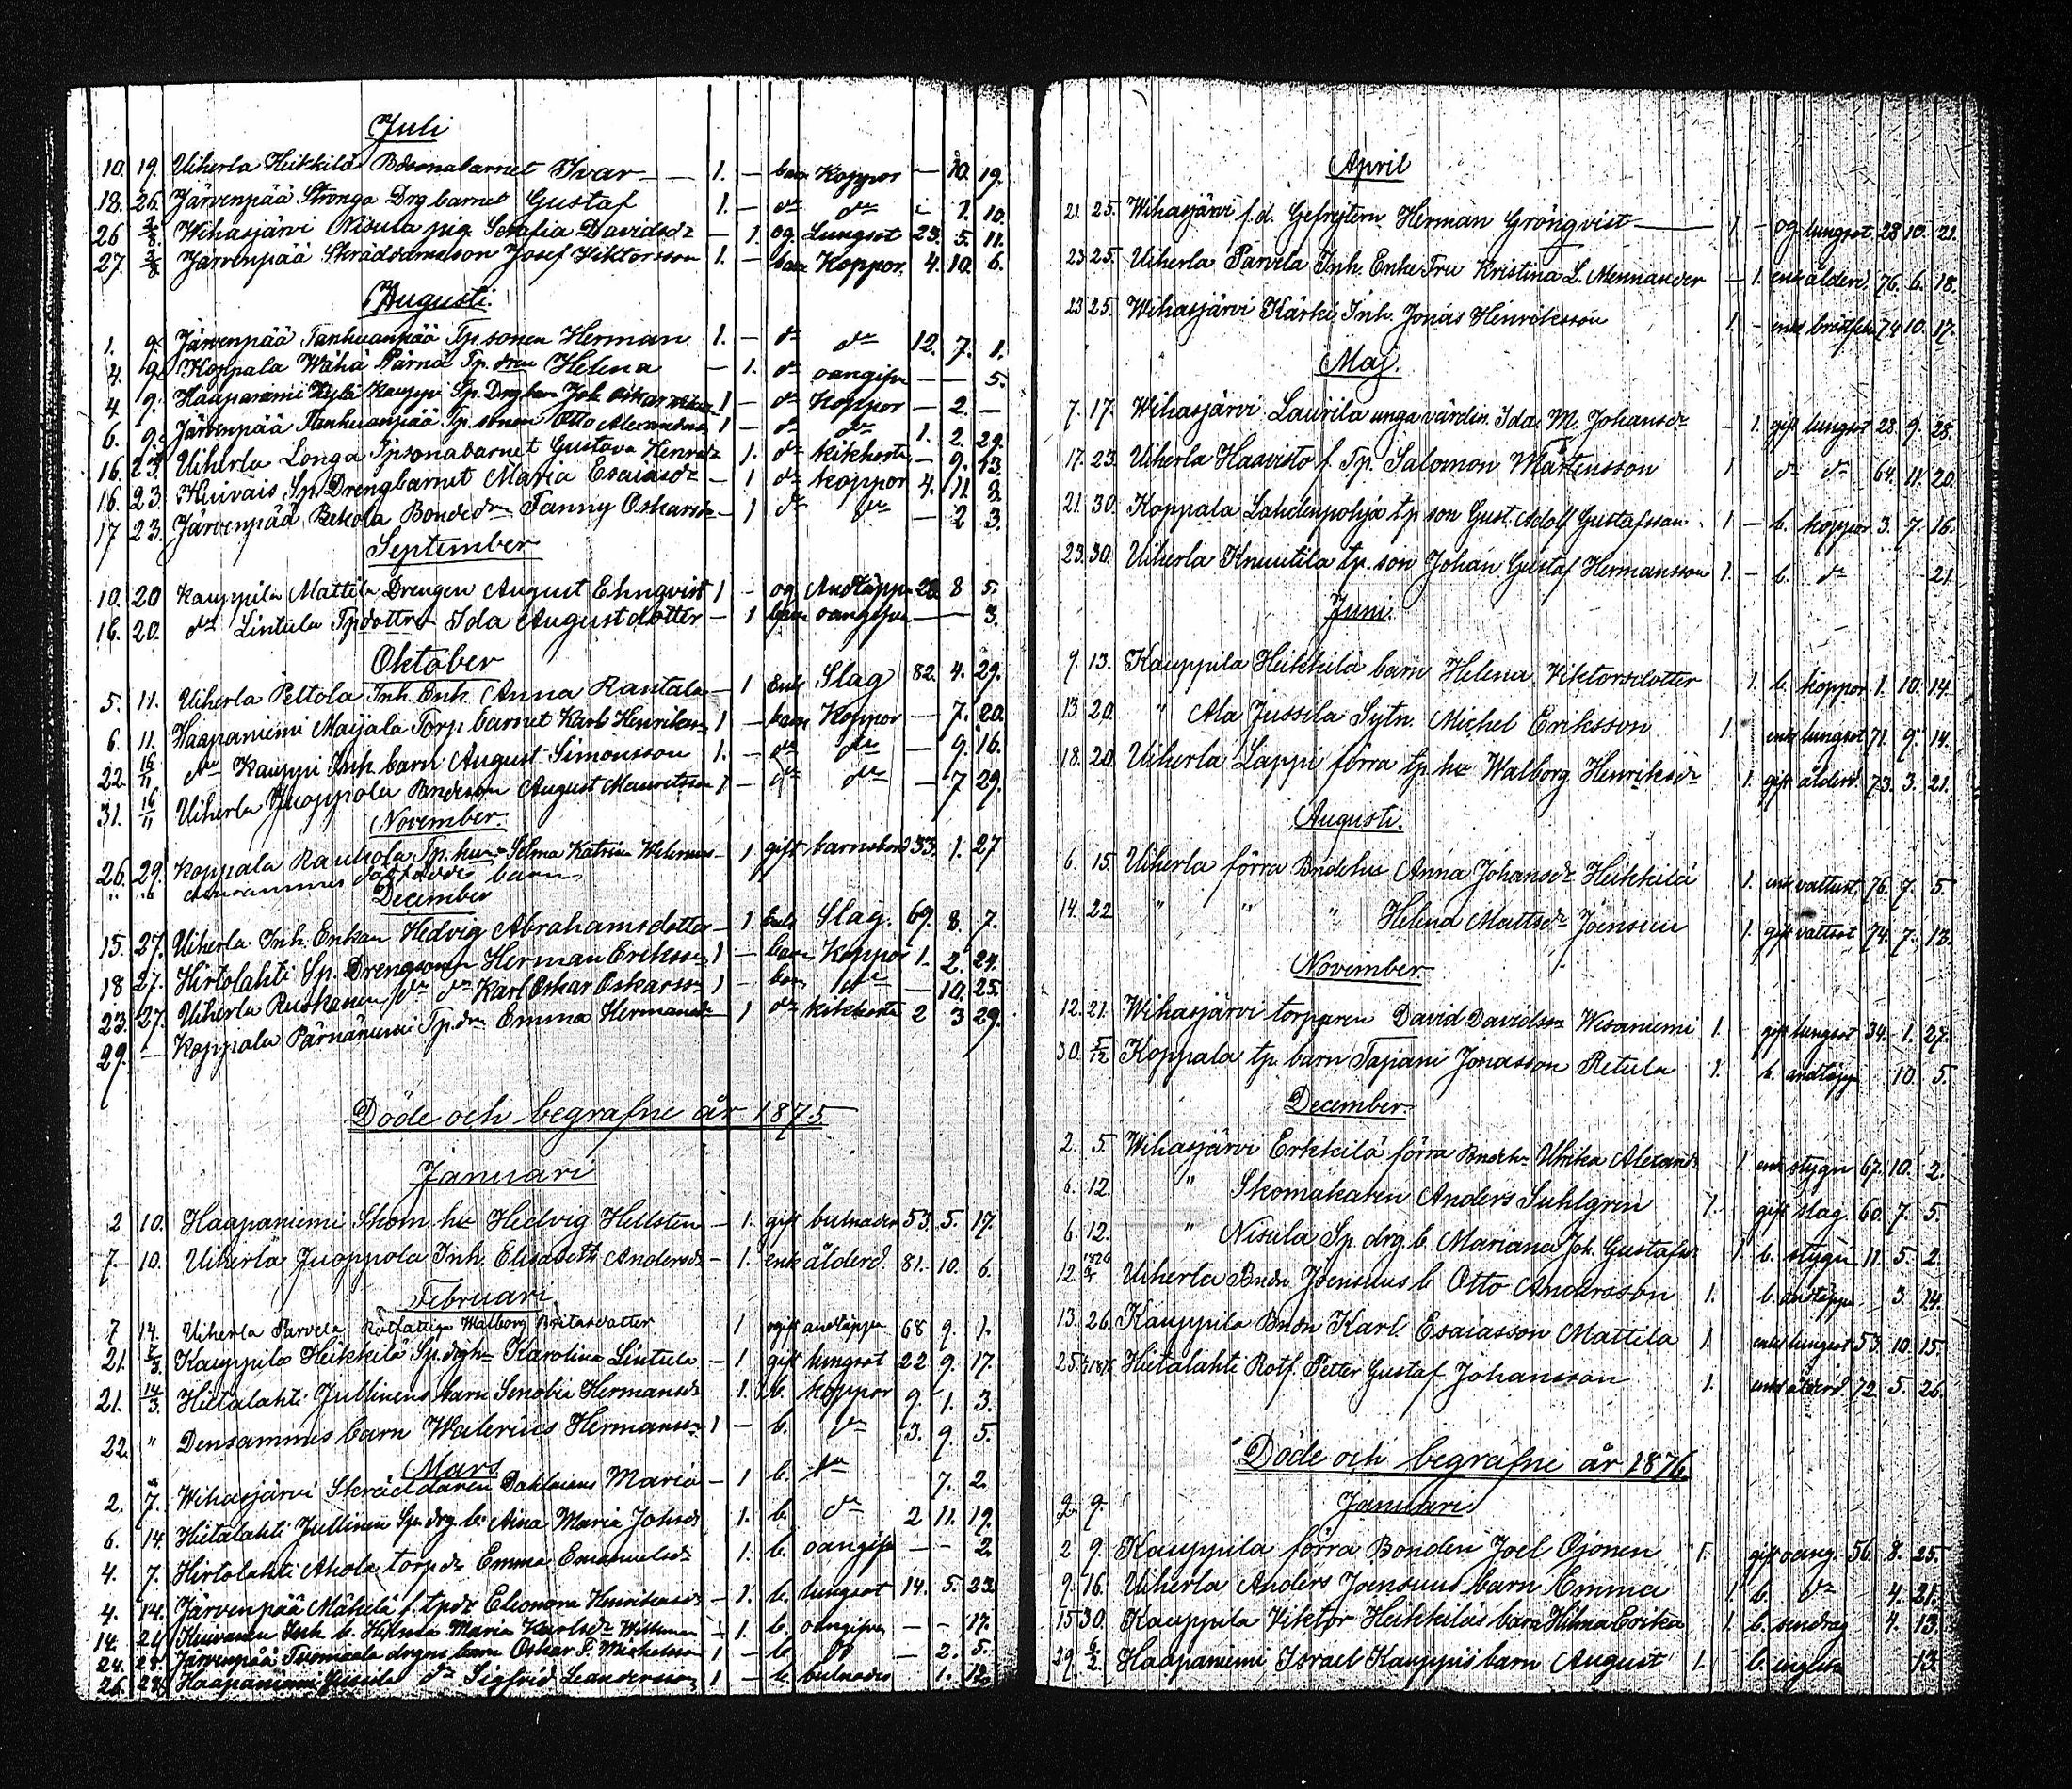 Juli
10. 19. Uiherla Heikkilä Bdesonabarnet Ivar — 1. — barn Koppor — 10. 19.
18. 26. Järvenpää Stronga Drg barnet Gustaf 1. — do do — 1. 10.
26. 2/8. Wihasjärvi Nisula pig. Serafia Davidsdr — 1. og. Lungsot 23. 5. 11.
27. 2/8 Järvenpää Skräddareson Josef Viktorsson 1. — barn Koppor. 4. 10. 6.
Augusti.
1. 9. Järvenpää Tanhuanpää Tp. sonen Herman 1. — do do 12. 7. 1.
4. 9. Koppala Wähä Pärnä Tp. drn Helena — 1. do oangifven — — 5.
4. 9. Haapaniemi Kylä Kauppi Sp. Drg barn Joh. Oskar 1 — do Koppor — 2. —
6. 9. Järvenpää Tanhuanpää Tp. sonen Otto Alexander 1 — do do 1. 2. 29.
16. 23. Uiherla Longa Tpsonabarnet Gustava Henriksdr 1. do kikhosta — 9. 13.
16. 23. Huivais Sp. Drengbarnet Maria Esaiasdr — 1 do koppor 4. 11. 8.
17 23. Järvenpää Bekola Bondedrn Fanny Oskarsdr — 1 do do — 2 3.
September
10. 20 Kauppila Mattila Drengen August Ehnqvist 1 — og Andtäppa 28 8 5.
16. 20. do Lintula Tpdottrn Ida Augustdotter — 1 barn oangifven — — 3.
Oktober
5. 11. Uiherla Peltola Inh. Enk. Anna Rantala — 1 Enk Slag 82. 4. 29.
6. 11. Haapaniemi Maijala Torp. barnet Karl Henriksson 1 — barn Koppor — 7. 20.
22. 16/11 do Kauppi Inh. barn August Simonsson 1. — do do — 9. 16.
31. 16/11 Uiherla Juoppola Bndeson August Mauritsson 1 — do do — 7 29.
November.
26. 29. Koppala Rauhola Tp. hu. Selma Katrina — 1 gift barnsbörd 33. 1. 27
" " barn
December
15. 27. Uiherla Inh. Enkan Hedvig Abrahamsdotter — 1 Enk Slag. 69. 8. 7.
18 27. Hirtolahti Sp. Drengsonen Herman Eriksson 1 — barn Koppor 1. 2. 24.
23. 27. Uiherla do do Karl Oskar Oskarsson 1 — barn do — 10. 25.
29. — Koppala Pärnäniemi Tp. drn Emma Hermansdr — 1 do kikhosta 2 3 29.
Döde och begrafne år 1875
Januari
2 10. Haapaniemi Skom. hu Hedvig Hellsten — 1. gift bulnader 53. 5. 17.
7. 10. Uiherla Juoppola Inh. Elisabeth Andersdr — 1. enk ålderd. 81. 10. 6.
Februari
7 14. Uiherla Parvela Rotfattige Walborg Britasdotter 1 ogift andtäppa 68 9. 1.
21. 7/3. Kauppila Heikkilä Sp. drghu Karolina Lintula — 1 gift lungsot 22 9. 17.
21. 14/3. Hietalahti Jullinens barn Senobia Hermansdr 1. b. koppor 9. 1. 3.
22. " Densammes barn Walerius Hermansson 1 — b. do 3. 9. 5.
Mars
2. 7. Wihasjärvi Skräddaren Dahlmans Maria — 1 b. do 7. 2.
6. 14. Hietalahti Jullinen Sp. drg. b. Aina Maria Johsdr 1. b. do 2 11. 19.
4. 7. Hirtolahti Ahola torp dr Emma Emanuelsdr 1. b. oangifven — — 2.
4. 14. Järvenpää Mäkelä f. tpdr Eleonora Henriksdr — 1. b. lungsot 14. 5. 23.
14. 21. Huivanen Inh. b. Hilma Maria Karlsdr Willman — 1. b. oangifven — — 17.
24. 28. Järvenpää Tuomaala drgens barn Oskar F. Michelsson 1 — b. do — 2. 5.
26. 28. Haapaniemi Jussila do Sigfrid Leandersson 1 — b. bulnader 1. 12.
April
21. 25. Wihasjärvi f.d. Gefrejtern Herman Grönqvist — 1 — og lungsot 28 10. 21.
23. 25. Uiherla Parvela Inh. Enke Fru Kristina L. Mennander — 1. enk ålderd. 76. 6. 18.
23 25. Wihasjärvi Kärki Inh. Jonas Henriksson 1. — enkl bröstfeber 74 10. 17.
Maj.
7. 17. Wihasjärvi Laurila unga värdin. Ida M. Johansdr — 1. gift lungsot 28. 9. 28.
17. 23. Uiherla Haavisto f. Tp. Salomon Mårtensson 1. do do 64. 11. 20.
21. 30. Koppala Lahdenpohja tp son Gust. Adolf Gustafsson 1 — b. koppor 3. 7. 16.
23. 30. Uiherla Knuutila tp. son Johan Gustaf Hermansson 1. — b. do 21.
Juni.
7. 13. Kauppila Heikkilä barn Helena Viktorsdotter 1. b. koppor 1. 10. 14.
13. 20. " Ala Jussila Sytn. Michel Eriksson 1. enkl lungsot 71. 9. 14.
18. 20. Uiherla Lappi förra tp. hu Walborg Henriksdr 1. gift ålderd. 73. 3. 21.
Augusti.
6. 15. Uiherla förra Bndehu Anna Johansdr Heikkilä 1. enk vattust. 76. 7. 5.
14. 22. " " " Helena Mattsdr Joensuu 1. gift vattsot 74. 7. 13.
November
12. 21. Wihasjärvi torparen David Davidsson Wisaniemi 1. — gift lungsot 34. 1. 27.
30. 5/12 Koppala tp. barn Tapani Jonasson Retula 1. b. andtäppa 10. 5.
December.
2. 5. Wihasjärvi Erkkilä förra Bndehu Ulrika Alexandr 1. enk stygn 67. 10. 2.
6. 12. " Skomakaren Anders Suhlgren 1. gift slag 60. 7. 5.
6. 12. " Nisula Sp. drg. b. Mariana Joh. Gustafsdr 1. b. stygn 11. 5. 2.
12. 1876 Uiherla Bndn Joensuus b. Otto Andersson 1. b. andtäppa 3. 14.
13. 26. Kauppila Bndn Karl Esaiasson Mattila 1. enkl lungsot 53. 10. 15.
25. 1876 Hietalahti Rotf. Petter Gustaf Johansson 1. enkl ålderd 72. 5. 26.
Döde och begrafne år 1876
Januari
2. 9.
2 9. Kauppila förra Bonden Joel Ojonen 1. gift oang. 56. 8. 25.
9. 16. Uiherla Anders Joensuus barn Emma 1. b. do 4. 21.
15 30. Kauppila Viktor Heikkiläs barn Hilma Erika 1. b. sendrag 4. 13.
29. 6/2. Haapaniemi Israel Kauppis barn August 1. b. engelska 13.